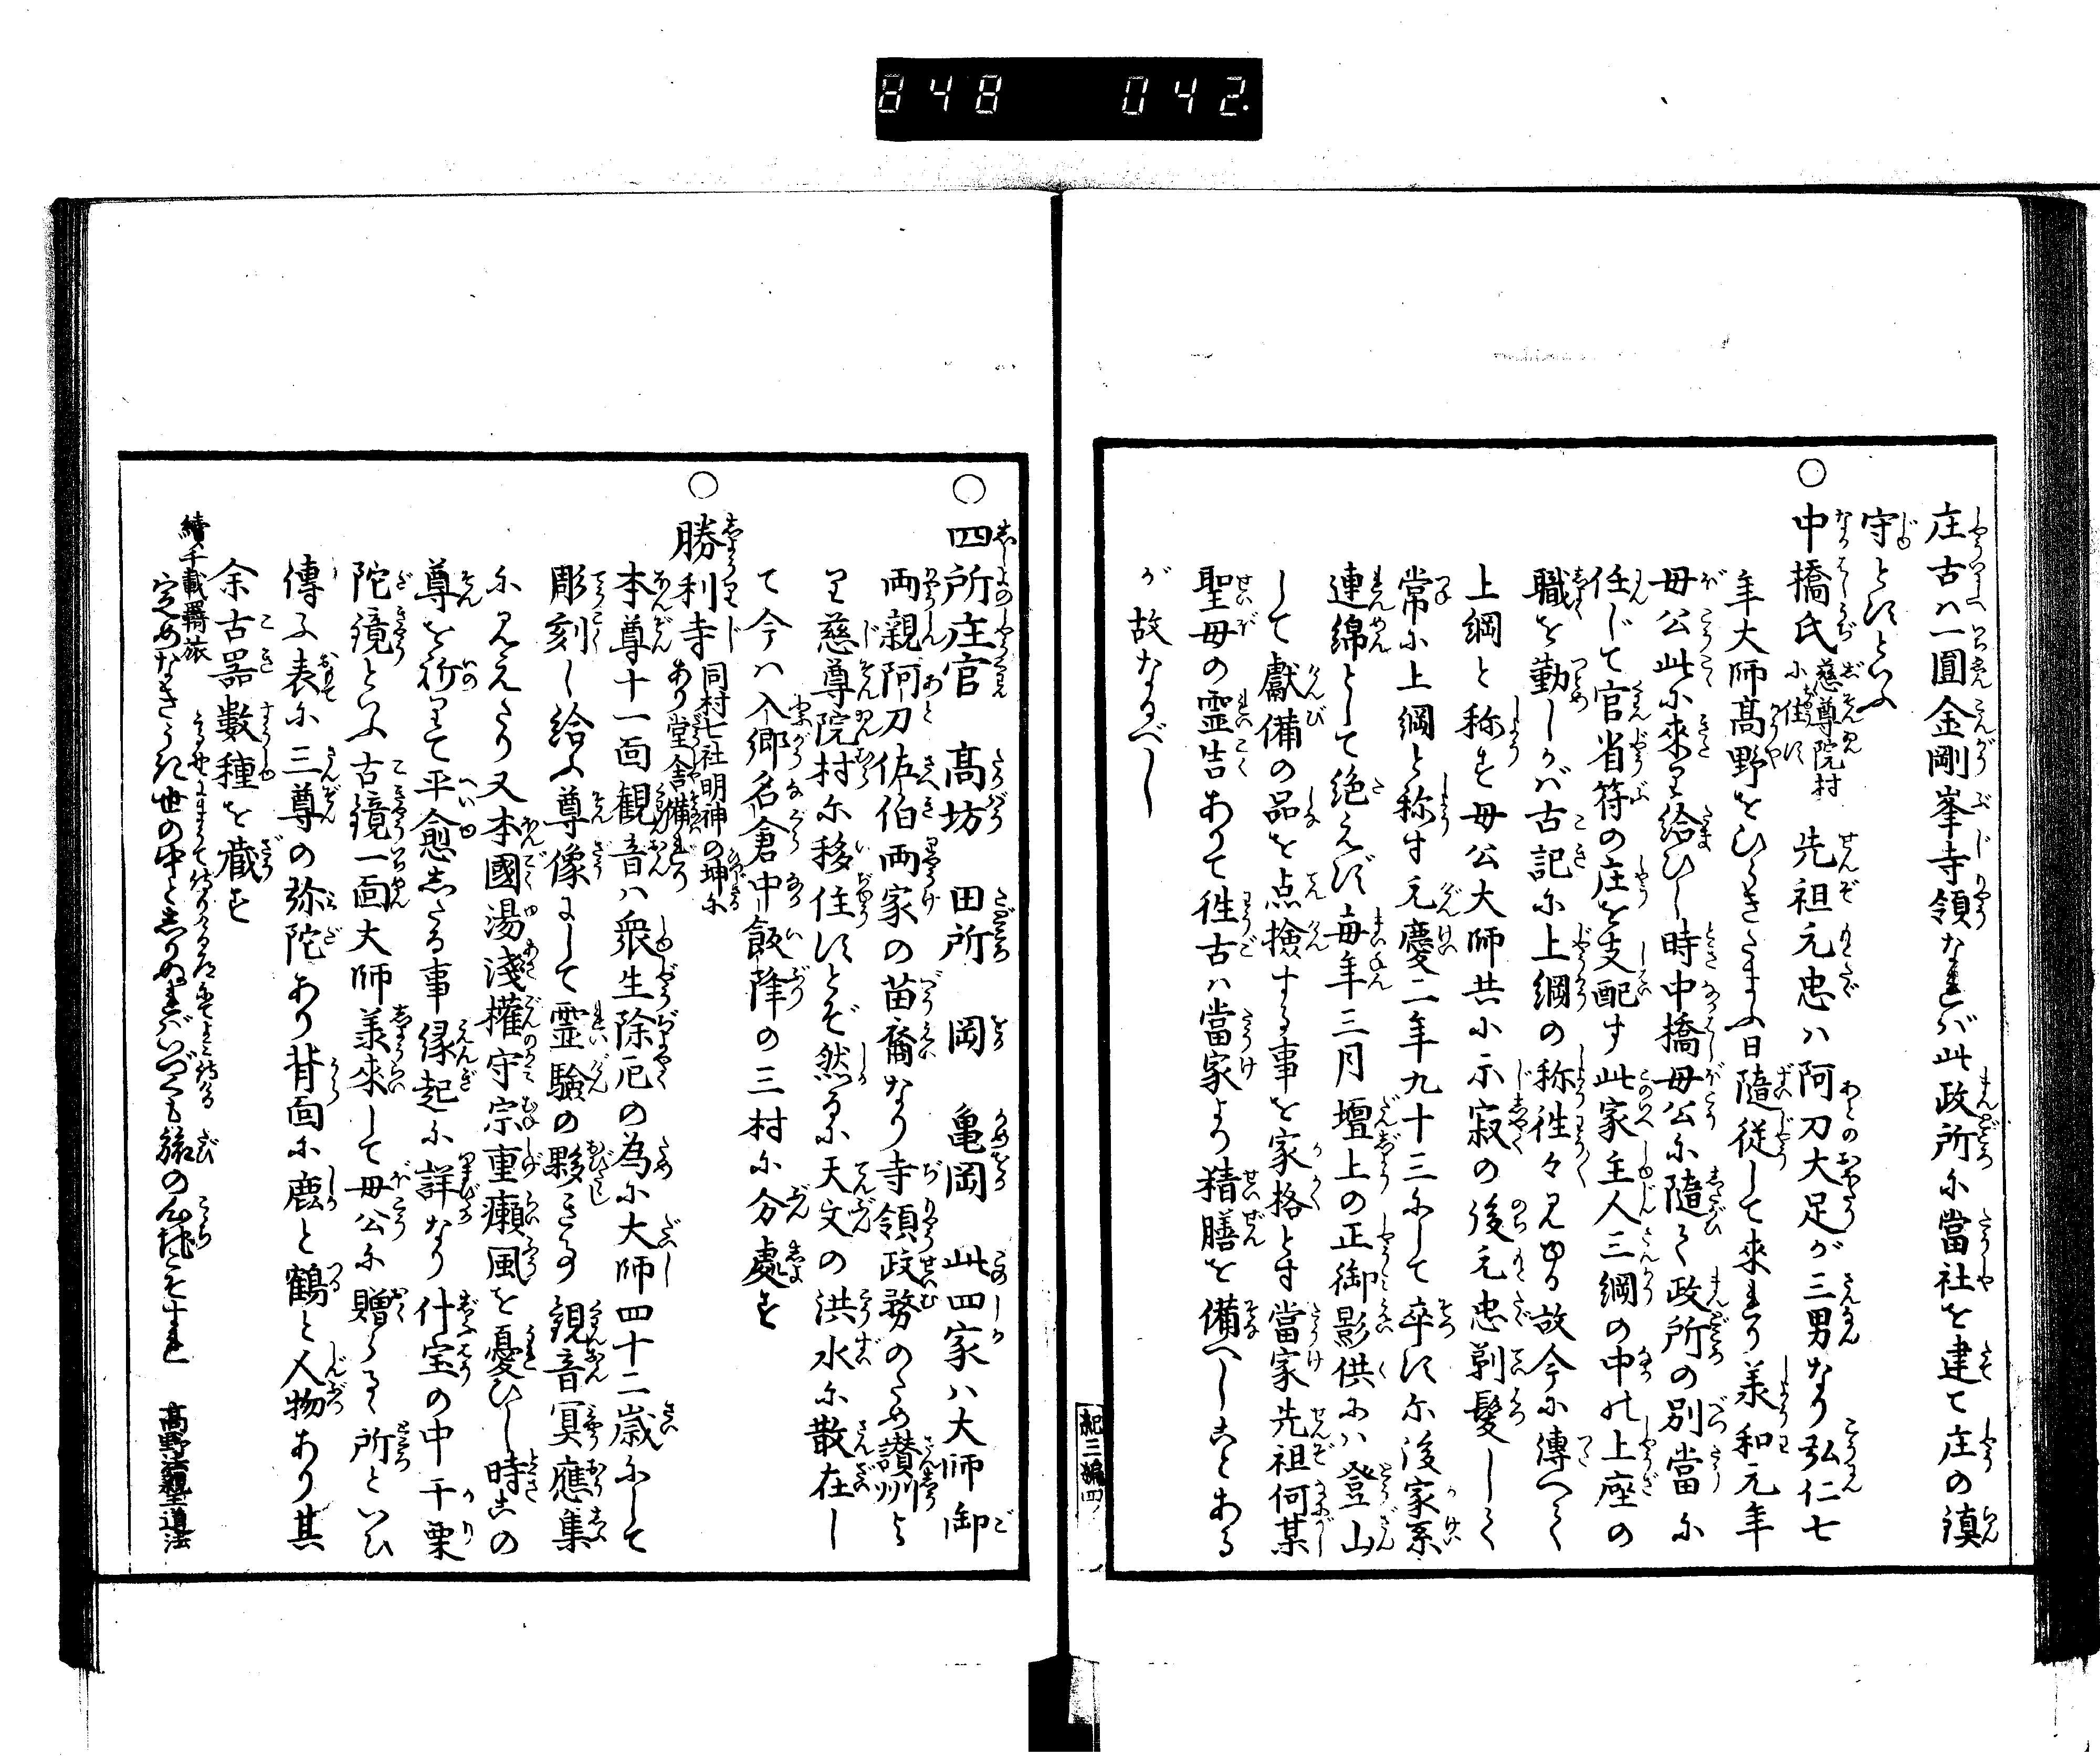 848 042.
庄古ハ一圓金剛峯寺領なれバ此政所に當社を建て庄の鎮
守とすといふ
○中橋氏 慈尊院村に住す 先祖元忠ハ阿刀大足が三男なり弘仁七
年大師髙野をひらきたまふ日隨従して來れり羕和元年
毋公此に來り給ひし時中橋毋公に隨て政所の別當に
任じて官省符の庄を支配す此家主人三綱の中の上座の
職を勤しかバ古記に上綱の称徃々見ゆる故今に傳へて
上綱と称す毋公大師共に示寂の後元忠剃髮して
常に上綱と称す元慶二年九十三にして卒す尓後家系
連綿として絶えず毎年三月壇上の正御影供にハ登山
して獻備の品を点撿する事を家格とす當家先祖何某
聖毋の霊告ありて徃古ハ當家より精膳を備へしことある
が故なるべし
紀三編四ノ
○四所庄官 髙坊 田所 岡 亀岡 此四家ハ大師御
両親阿刀佐伯両家の苗裔なり寺領政務のため讃州より
慈尊院村に移住すとぞ然るに天文の洪水に散在し
て今ハ入郷名倉中飯降の三村に分處す
○勝利寺 同村七社明神の坤にあり堂舎備れり
本尊十一面観音ハ衆生除厄の為に大師四十二歳にして
彫刻し給ふ尊像にして霊驗の夥き事 観音冥應集
に見えたり又本國湯淺權守宗重癩風を憂ひし時此の
尊を祈りて平愈したる事縁起に詳なり什宝の中干栗
陀鏡といふ古鏡一面大師羕來して毋公に贈らるゝ所といひ
傳ふ表に三尊の弥陀あり背面に鹿と鶴と人物あり其
余古器數種を蔵す
續千載羇旅
定めなきうき世の中としりぬればいづくも旅の心地こそすれ 髙野法親王道法